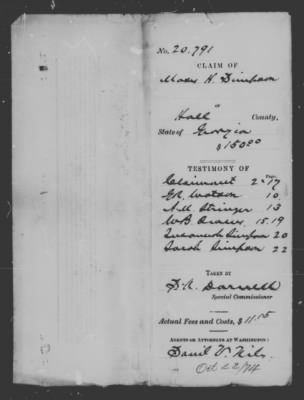 No. 20.791
CLAIM OF
Moses H. Simpson
Hall County,
State of Georgia
$ 150.00
TESTIMONY OF
Page.
Claimant 2-17
Watson 10
Stringer 13
W B 15.19
Simpson 20
Sarah Simpson 22
TAKEN BY
Darnell
Special Commissioner
Actual Fees and Costs, $ 11.05
AGENTS OR ATTORNEYS AT WASHINGTON:
Oct 22/74